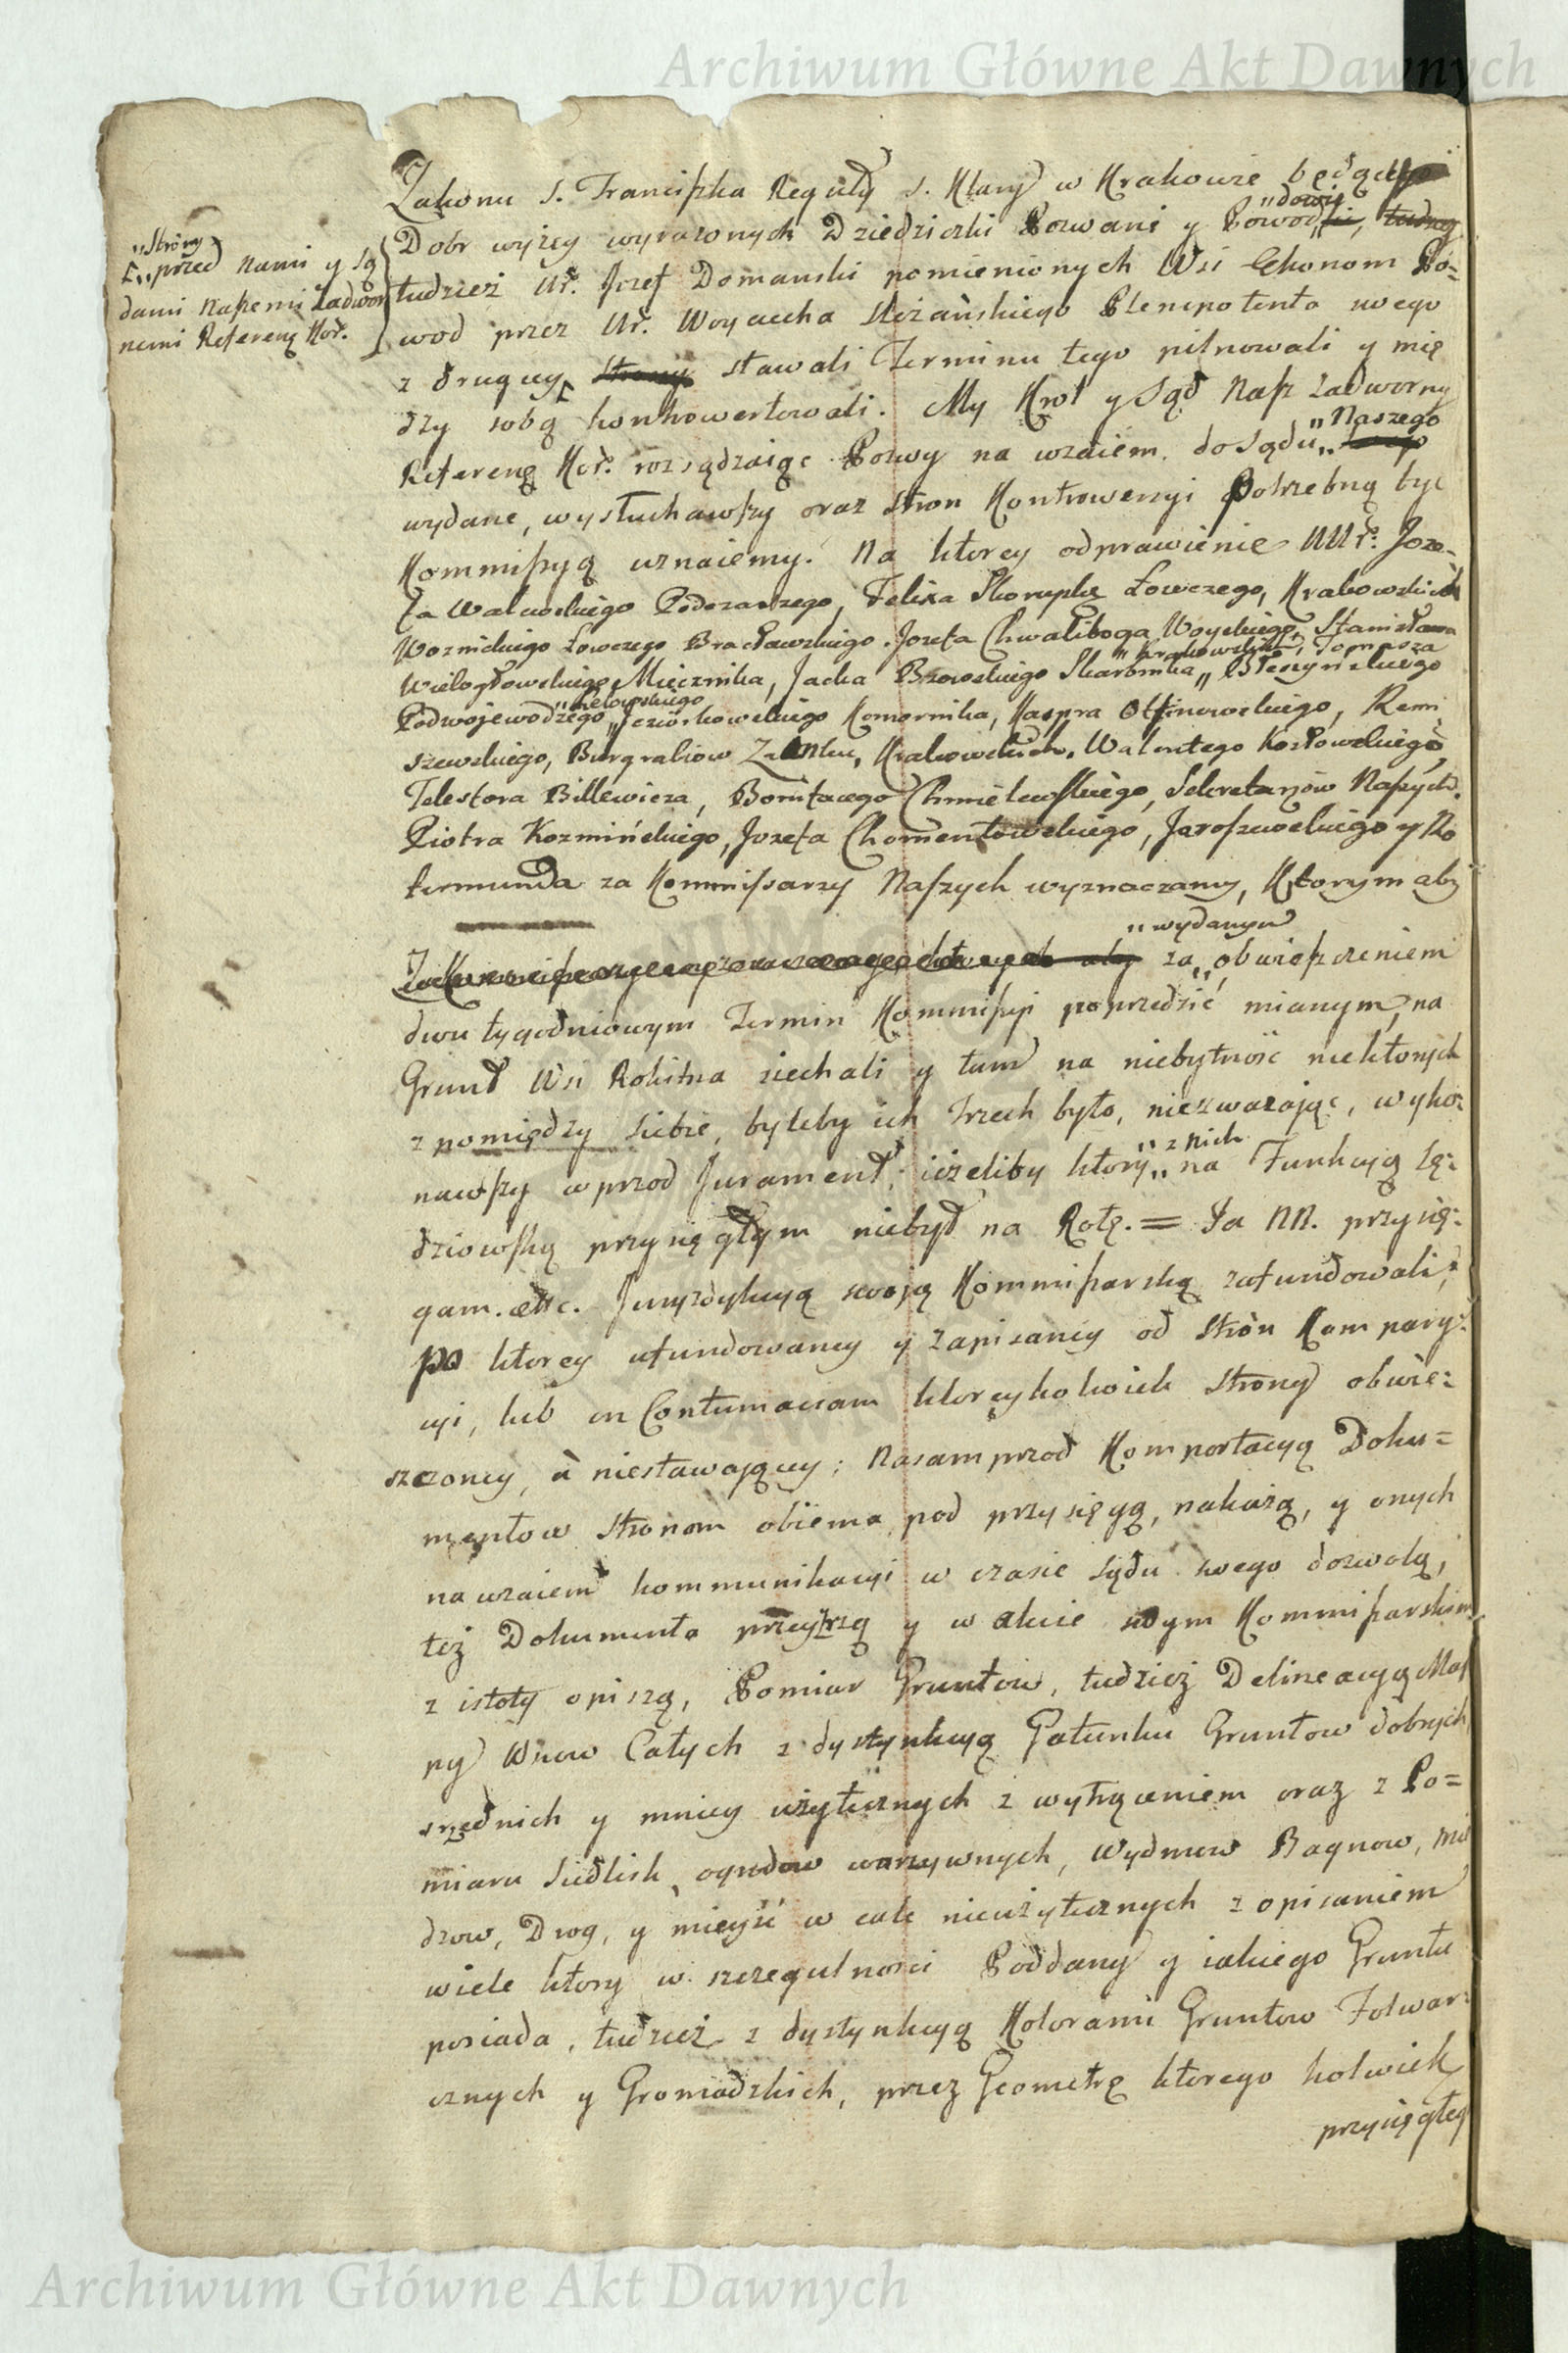 Archiwum Główne Akt Dawnych
Zakonu S. Franciszka Reguły S. Klary w Krakowie będące
Dobr wyżey wyrażonych Dziedziczki Pozwani y Powod„dowie
„Strony
„przed Nami y Są
dami Naszemi Zadwor
nemi Referenq Kor.
tudzież Ur. Jozef Domanski pomienionych Wsi Ekonom Po=
wod przez Ur. Woyciecha Plenipotenta swego
z drugiey Strony stawali Terminu tego pilnowali y mię
dzy sobą kontrowertowali. My Krol y Sąd Nasz Zadworny
Referenq Kor. rozsądzaiąc Pozwy na wzaiem. do Sądu „Naszego
wydane, wysłuchawszy oraz stron Kontrowersyi Potrzebną byc
Kommissyą uznaiemy. Na ktorey odprawienie UUr. Joze-
fa Walewskiego Podczaszego, Felixa Skorupkę Łowczego, Krakowskich
Woznickiego Łowczego Bracławskiego. Jozefa Chwaliboga Woyskiego, Stanisława
Wielogłowskiego Miecznika, Jacka Brzowskiego Skarbnika „Krakowskich, Tomasza Błeszyńskiego
Podwojewodzego „ Jeziorkowskiego Komornika, Kaspra Otfinowskiego, Rem
szewskiego, Burgrabiow Zamku, Krakowskich, Walentego Kozłowskiego,
Telesfora Billewicza, Bonifacego Chmielewskiego, Sekretarzow Naszych.
Piotra Kozmińskiego, Jozefa Chomentowskiego, Jaroszewskiego y Ro
kermunda za Kommissarzy Naszych wyznaczamy, Ktorym aby
za „wydanym obwieszczeniem
dwu tygodniowym Termin Kommissyi poprzedzić mianym, na
Grunt Wsi Rokitna ziechali y tam na niebytność niektorych
z pomiędzy siebie, byleby ich Trzech było, niezważając, wyko=
nawszy wprzod Jurament, ieżeliby ktory „z nich na Funkcyą Sę=
dziowską przysięgłym niebył na Rotę. = Ja NN. przysię=
gam. etc. Juryzdykcyą swoją Kommissarską zafundowali,
po ktorey ufundowaney y zapisaney od Strón Kompary=
cyi, lub in Contumaciam ktoreykolwiek Strony obwie=
szczoney, à niestawającey; Nasamprzod Komportacyą Doku=
mentow Stronom obiema pod przysięgą, nakażą, y onych
na wzaiem kommunikacyi w czasie sądu swego dozwolą,
też Dokumenta przeyrzą y w akcie swym Kommissarskim
z istoty opiszą, Pomiar Gruntow, tudzież Delineacyą Map
py Wsiow Całych z dystynkcyą Gatunku Gruntow dobrych
srzednich y mniey użytecznych z wytrąceniem oraz z Po=
miaru Siedlisk, ogrodow warzywnych, Wydmow Bagnow, Mie
dzow, Drog, y mieysc w cale nieużytecznych z opisaniem
wiele ktory w szczegulnosci Poddany y iakiego Gruntu
posiada, tudzież z dystynkcyą Kolorami Gruntow Folwar=
cznych y Gromadzkich, przez Geometrę ktorego kolwiek
przysięgłeg
Archiwum Główne Akt Dawnych